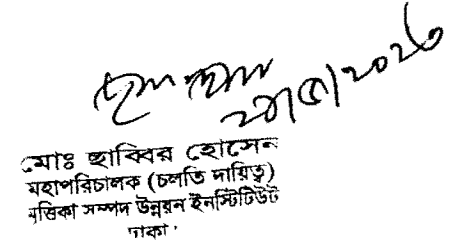 মোঃ ছাব্বির হোসেন
মহাপরিচালক (চলতি দায়িত্ব)
মৃত্তিকা সম্পদ উন্নয়ন ইনস্টিটিউট
ঢাকা।